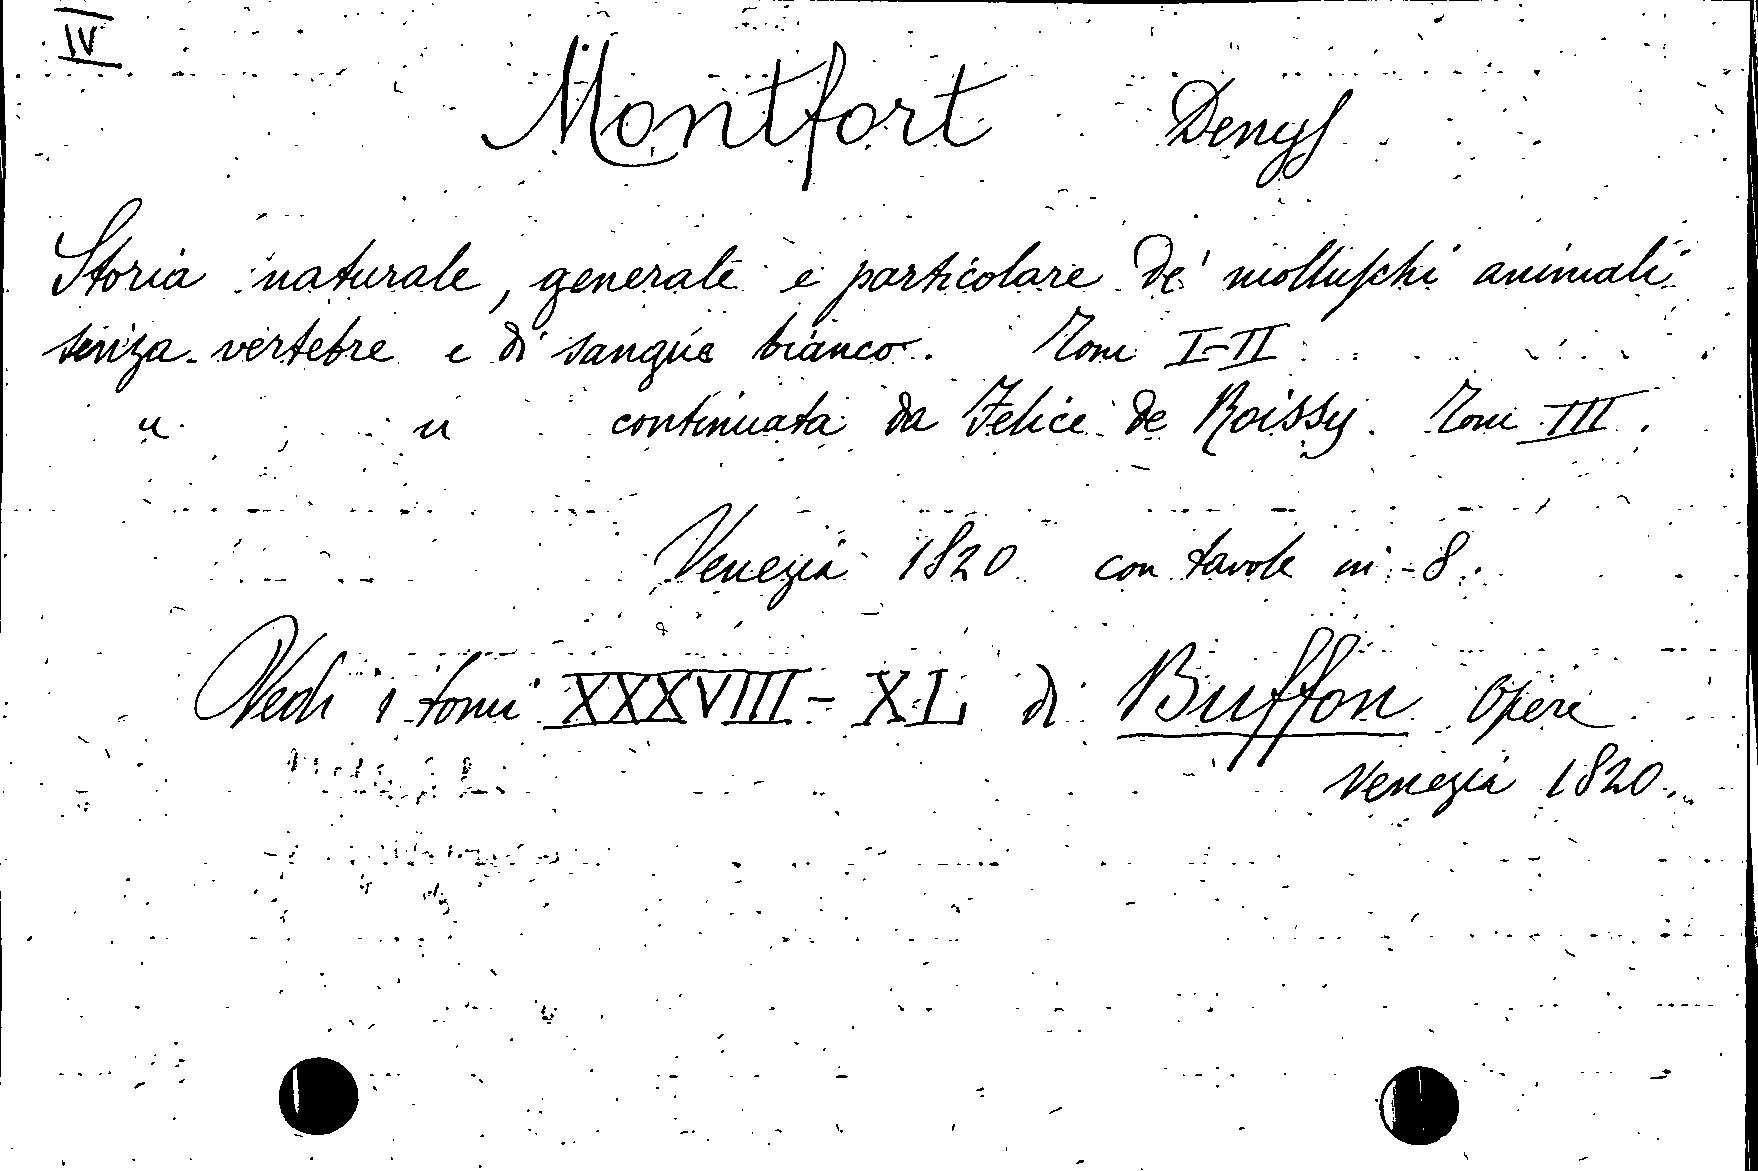 IV
Montfort Denys
Storia naturale, generale e particolare de' molluschi animali
senza vertebre e di sangue bianco. Tomi I-II
" " continuata da Felice de Roissy. Tomi III.
Venezia 1820 con tavole in-8.
Vedi i tomi XXXVIII-XL di Buffon Opere
Venezia 1820.